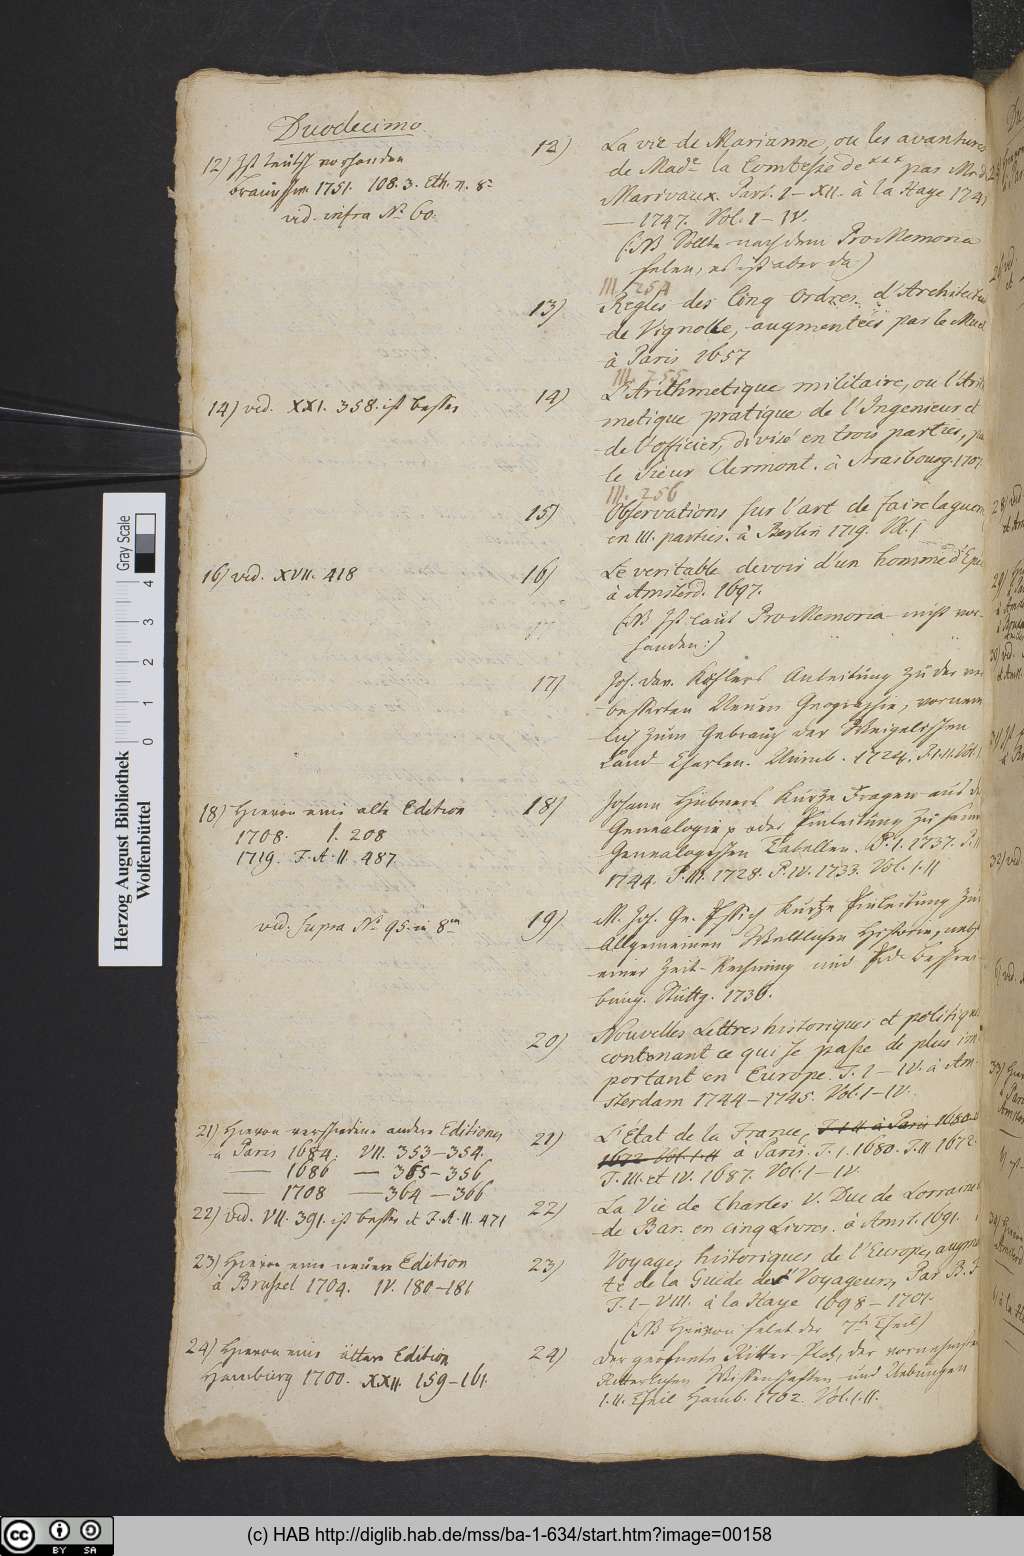 Duodecimo
12) Ist teutsch vorhanden
Braunschw. 1751. 108. 3. Eth. n. 8°
vid. infra N° 60.
14) vid. XXI. 358. ist besser
16) vid. XVII. 418
18) Hievon eine alte Edition
1708. I. 208
1719. F. A. II. 487
vid. supra N° 95. in 8vo
21) Hievon verschiedene andere Editiones
à Paris 1684. VII. 353–354.
— 1686 — 365–356
— 1708 — 364–366
22) vid. VII. 391. ist besser et F. A. II. 471
23) Hievon eine neuere Edition
à Brussel 1704. IV. 180–181
24) Hievon eine ältere Edition
Hamburg 1700. XXII. 159–161
12) La vie de Marianne, ou les avantures
de Made la Comtesse de *** par Mr. d
Marivaux. Part. I–XII. à la Haye 1741
— 1747. Vol. I–IV.
(NB Sollte nach dem Pro Memoria
felen, es ist aber da)
III. 254
13) Regles des Cinq Ordres d'Architectu
de Vignolle, augmentées par le Muet
à Paris 1657
III. 255
14) L'Arithmetique militaire, ou l'Arit
metique pratique de l'Ingenieur et
de l'officier, divisé en trois parties, pa
le Sieur Clermont. à Strasbourg. 1707.
III. 256
15) Observations sur l'art de faire la guerre
en III. parties. à Berlin 1719. Vol. I
16) Le veritable devoir d'un homme d'Epée
à Amsterd. 1697.
(NB Ist laut Pro Memoria nicht vor-
handen:)
17) Joh. Dav. Köhlers Anleitung zu der ver
besserten Neuen Geographie, vornem
lich zum Gebrauch der Weigelischen
Land-Charten. Nürnb. 1724. P. I. II. Vol. I
18) Johann Hübners Kurtze Fragen aus d
Genealogie oder Einleitung zu seinen
Genealogischen Tabellen. P. I. 1737. P. II
1744. P. III. 1728. P. IV. 1733. Vol. I. II
19) M. Joh. Ge. Essich Kurtze Einleitung zu
Allgemeinen Weltlichen Historie, nebst
einer Zeit-Rechnung und Erd-Beschrei-
bung. Stuttg. 1736.
20) Nouvelles Lettres historiques et politiques
contenant ce qui se passe de plus im-
portant en Europe. T. I–IV. à Am-
sterdam 1744–1745. Vol. I–IV.
21) L'Etat de la France, T. I. II à Paris 1680
1672 Vol. I. II à Paris. T. I. 1680. T. II 1672.
T. III. et IV. 1687. Vol. I–IV.
22) La Vie de Charles V. Duc de Lorraine et
de Bar. en cinq Livres. à Amst. 1691.
23) Voyages historiques de l'Europe, augme
té de la Guide des Voyageurs, Par B. F.
T. I–VIII. à la Haye 1698–1701.
(NB Hievon felet der 7te Theil)
24) Der geöfnete Ritter-Platz, der vornehmsten
Ritterlichen Wissenschaften und Uebungen
I. II. Theil Hamb. 1702. Vol. I. II.
Gray Scale
4
3
2
1
0
Herzog August Bibliothek
Wolfenbüttel
cc BY SA
(c) HAB http://diglib.hab.de/mss/ba-1-634/start.htm?image=00158